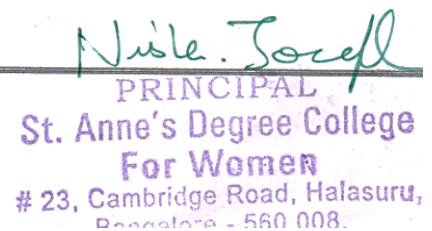 Nisha. Joseph
PRINCIPAL
St. Anne's Degree College
For Women
# 23, Cambridge Road, Halasuru,
Bangalore - 560 008.